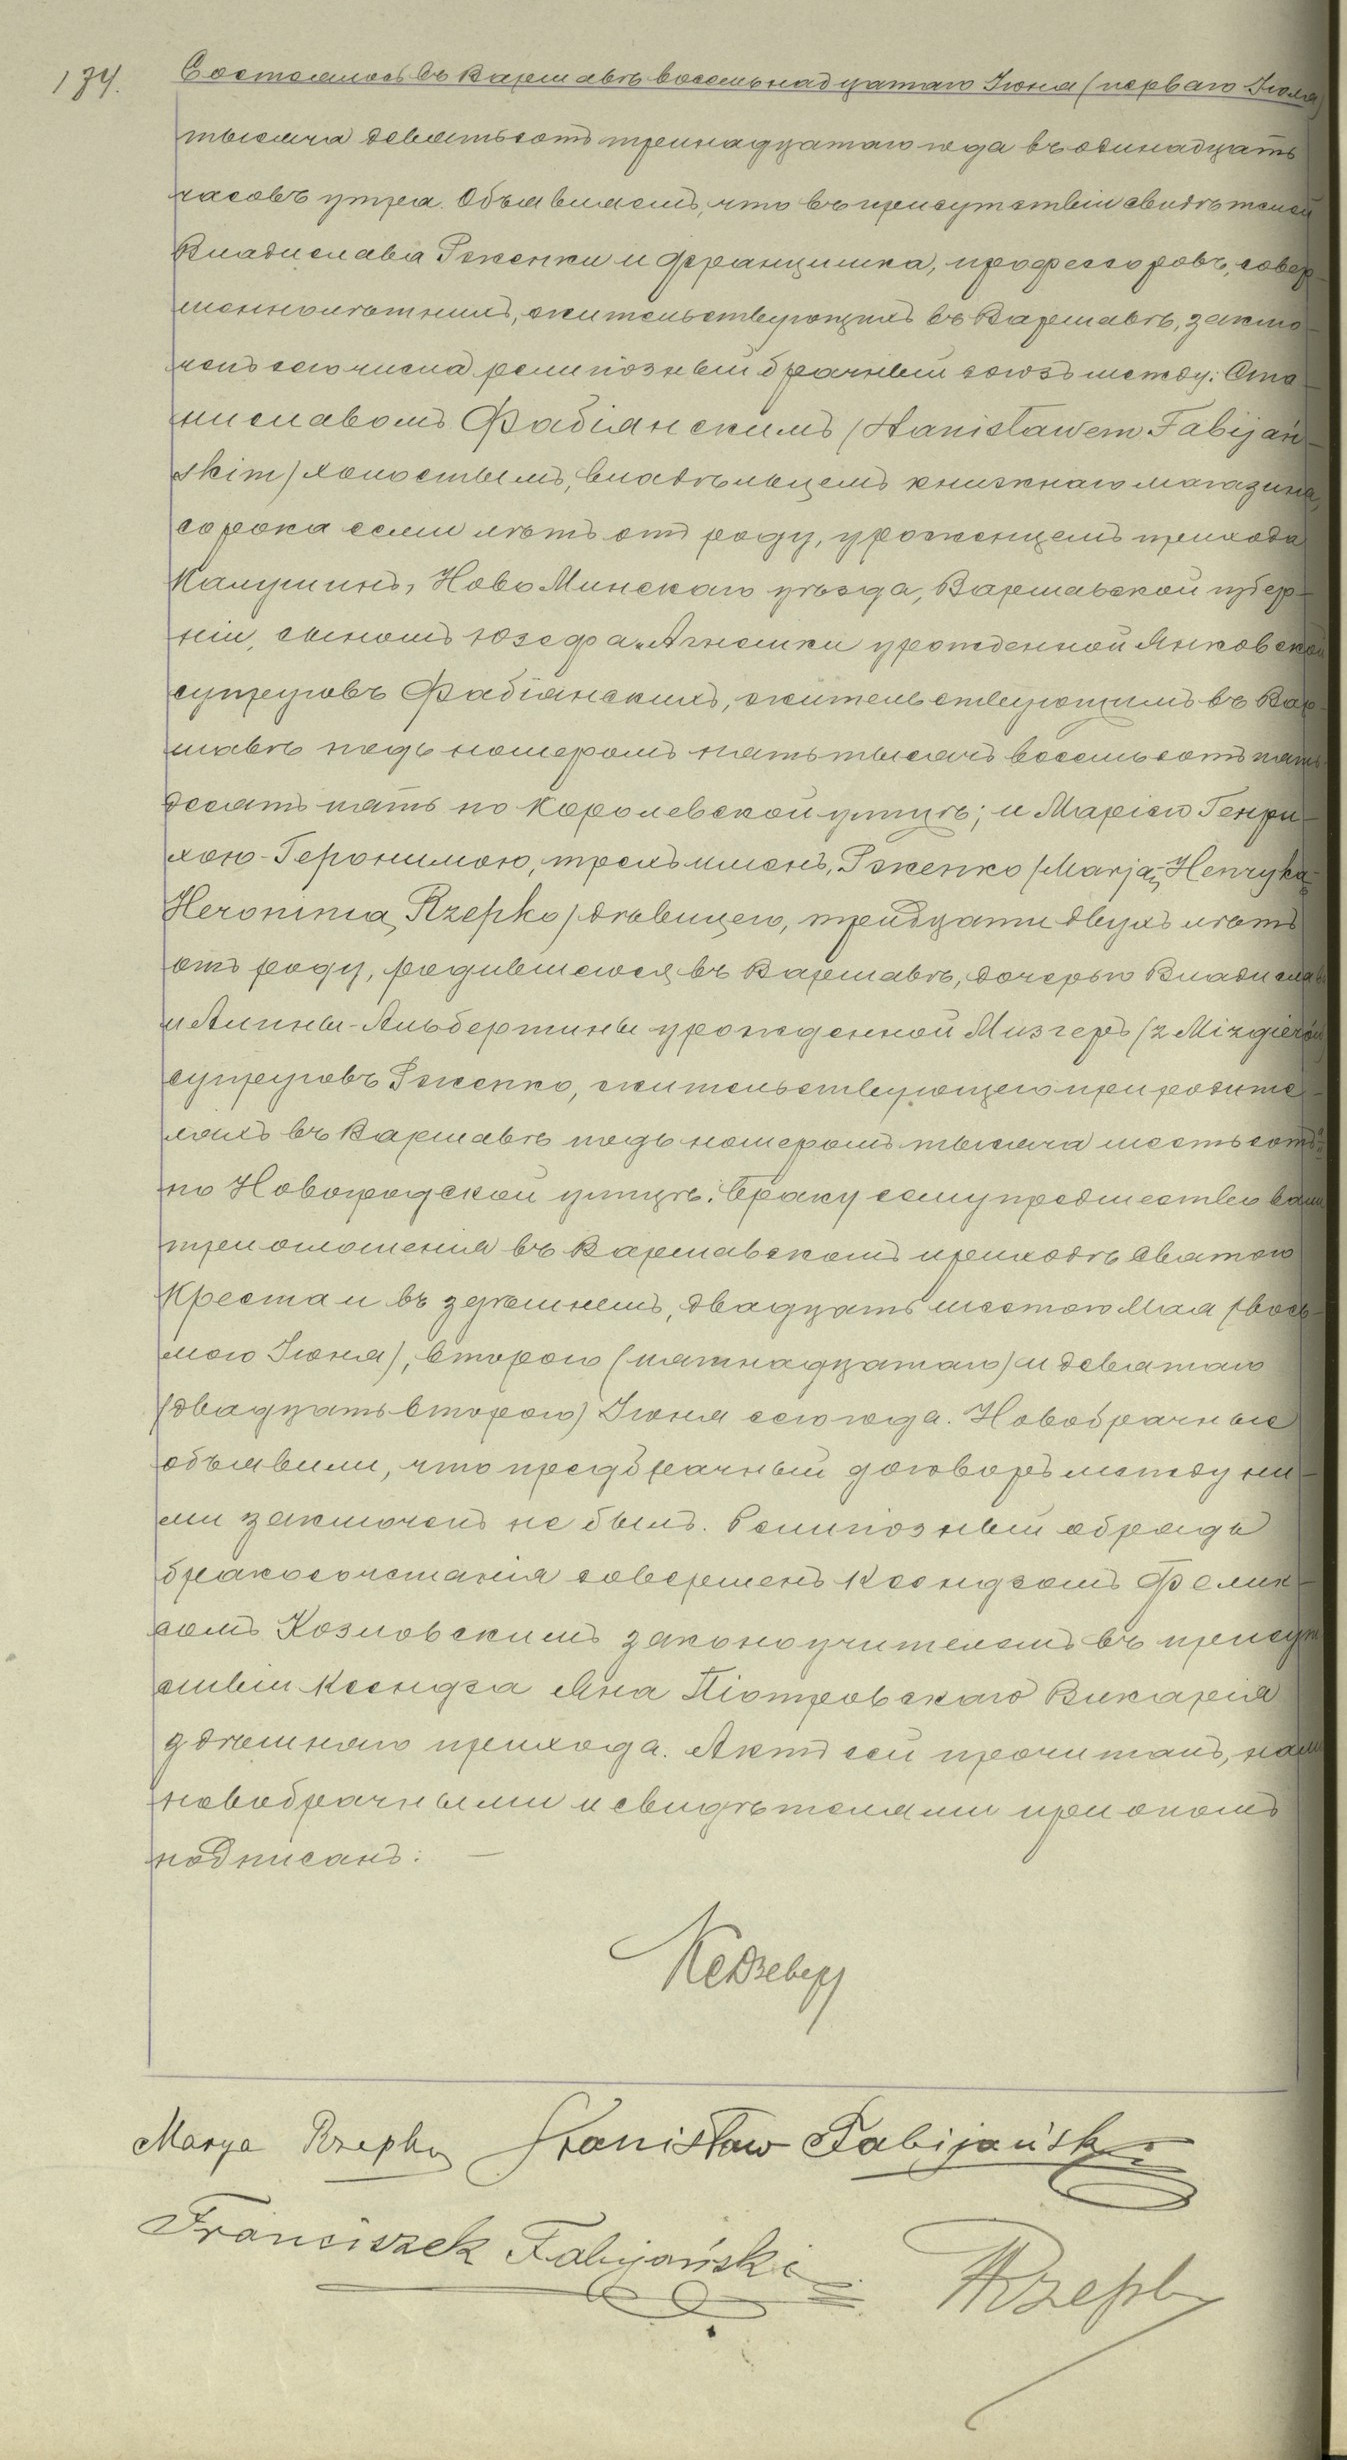 174.
Состоялось въ Варшавѣ восемьнадцатаго Іюня (перваго Іюля)
тысяча девятьсотъ тринадцатаго года въ одинадцать
часовъ утра. Объявляемъ, что въ присутствіи свидѣтелей
Владислава Ржепки и Францишка, профессоровъ, совер-
шеннолѣтнихъ, жительствующихъ въ Варшавѣ, заклю-
ченъ сего числа религіозный брачный союзъ между: Ста-
ниславомъ Фабіянскимъ /Stanisławem Fabijań-
skim/ холостымъ, владѣльцемъ книжнаго магазина,
сорока семи лѣтъ отъ роду, уроженцемъ прихода
Калушинъ, Ново Минскаго уѣзда, Варшавской губер-
ніи, сыномъ Юзефа и Агнешки урожденной Янковской
супруговъ Фабіянскихъ, жительствующимъ въ Вар-
шавѣ подъ номеромъ пять тысячъ восемьсотъ пять-
десятъ пять по Королевской улицѣ; и Маріею Генри-
хою-Геронимою, трехъ именъ, Ржепко /Marją-Henryką-
Heronimą Rzepko/ дѣвицею, тридцати двухъ лѣтъ
отъ роду, родившеюся въ Варшавѣ, дочерью Владислава
и Алины-Альбертины урожденной Мизгеръ (z Mizgierów)
супруговъ Ржепко, жительствующею при родите-
ляхъ въ Варшавѣ подъ номеромъ тысяча шестьсотъ
по Новогродской улицѣ. Браку сему предшествовали
три оглошенія въ Варшавскомъ приходѣ Святого
Креста и въ здѣшнемъ, двадцать шестого Мая /вось-
мого Іюня), второго (пятнадцатаго) и девятаго
(двадцать второго) Іюня сего года. Новобрачные
объявили, что предбрачный договоръ между ни-
ми заключенъ не былъ. Религіозный обрядъ
бракосочетанія совершенъ Ксендзомъ Фелик-
сомъ Козловскимъ законоучителемъ въ присут
ствіи Ксендза Яна Піотровскаго Викарія
здѣшняго прихода. Актъ сей прочитанъ, нами
новобрачными и свидѣтелями при ономъ
подписанъ: —
Marya Rzepko Stanisław Fabijański
Franciszek Fabijański Rzepko